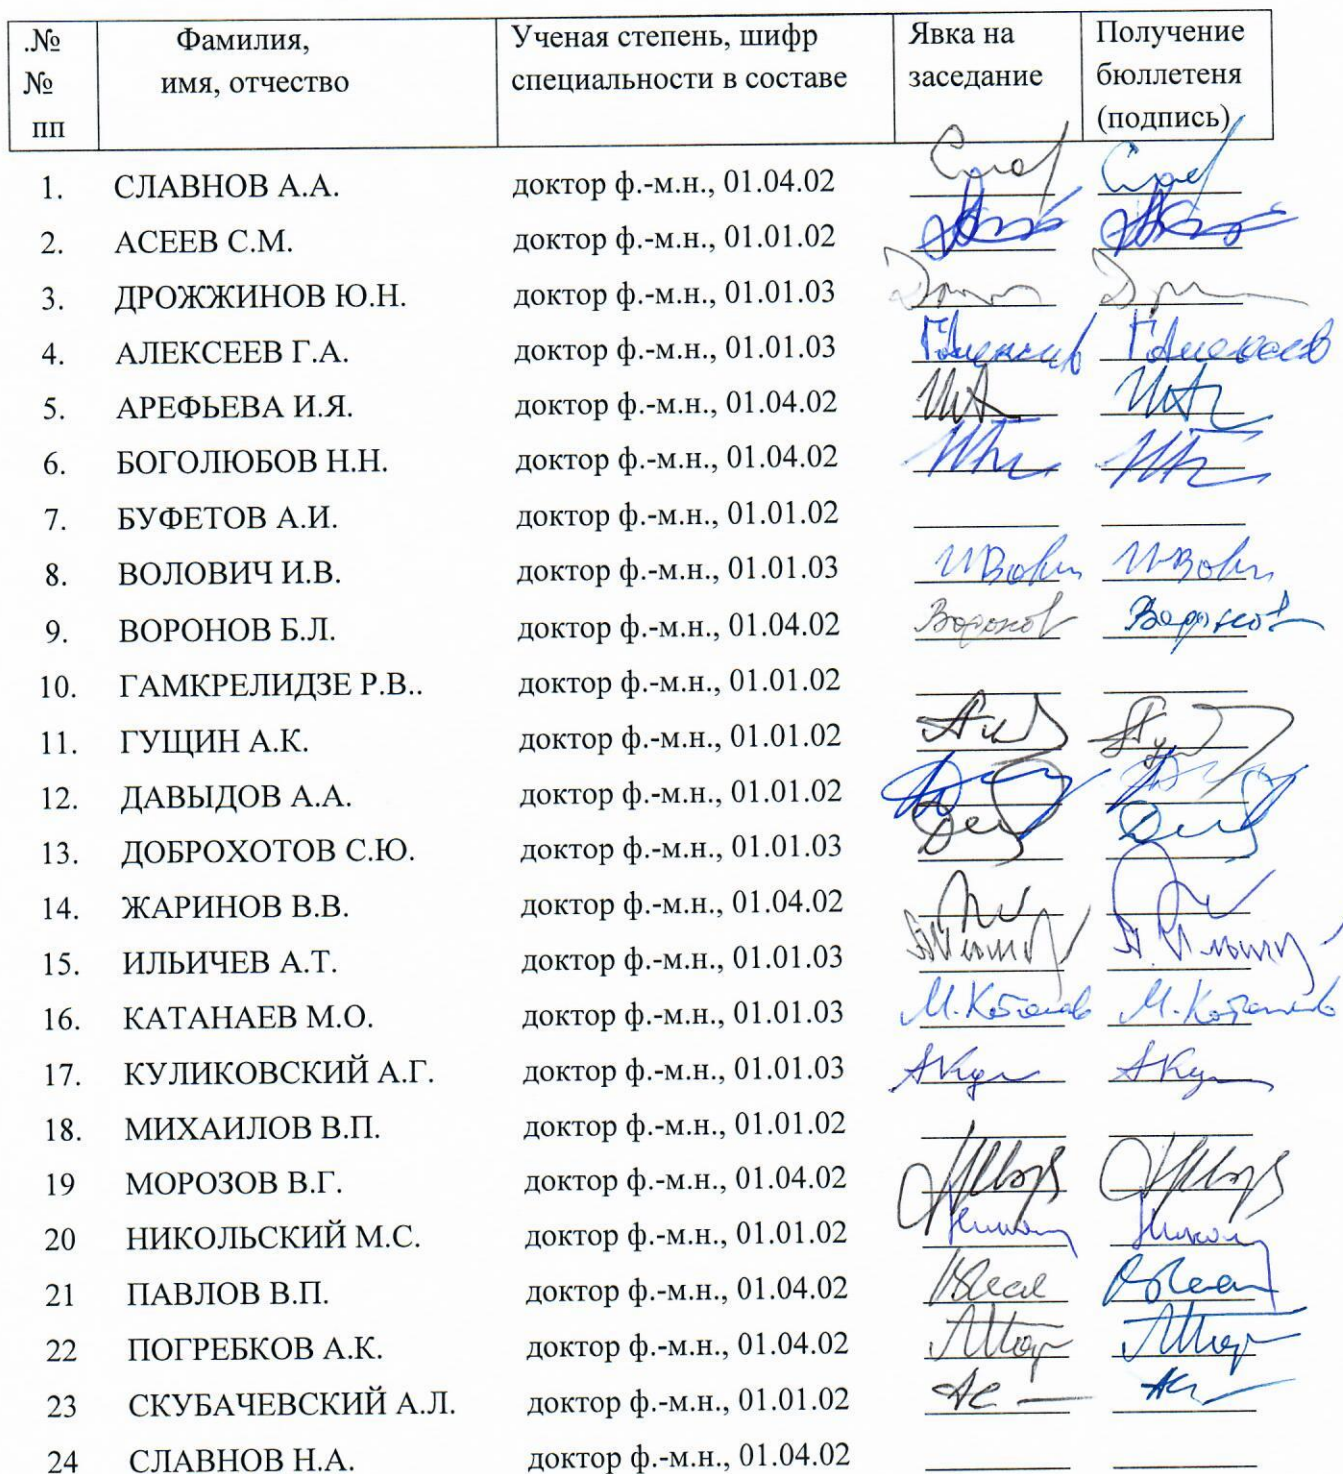 .№ Фамилия, Ученая степень, шифр Явка на Получение
№ имя, отчество специальности в составе заседание бюллетеня
пп (подпись)
1. СЛАВНОВ А.А. доктор ф.-м.н., 01.04.02
2. АСЕЕВ С.М. доктор ф.-м.н., 01.01.02
3. ДРОЖЖИНОВ Ю.Н. доктор ф.-м.н., 01.01.03
4. АЛЕКСЕЕВ Г.А. доктор ф.-м.н., 01.01.03
5. АРЕФЬЕВА И.Я. доктор ф.-м.н., 01.04.02
6. БОГОЛЮБОВ Н.Н. доктор ф.-м.н., 01.04.02
7. БУФЕТОВ А.И. доктор ф.-м.н., 01.01.02
8. ВОЛОВИЧ И.В. доктор ф.-м.н., 01.01.03
9. ВОРОНОВ Б.Л. доктор ф.-м.н., 01.04.02 Воронов Воронов
10. ГАМКРЕЛИДЗЕ Р.В.. доктор ф.-м.н., 01.01.02
11. ГУЩИН А.К. доктор ф.-м.н., 01.01.02
12. ДАВЫДОВ А.А. доктор ф.-м.н., 01.01.02
13. ДОБРОХОТОВ С.Ю. доктор ф.-м.н., 01.01.03
14. ЖАРИНОВ В.В. доктор ф.-м.н., 01.04.02
15. ИЛЬИЧЕВ А.Т. доктор ф.-м.н., 01.01.03
16. КАТАНАЕВ М.О. доктор ф.-м.н., 01.01.03
17. КУЛИКОВСКИЙ А.Г. доктор ф.-м.н., 01.01.03
18. МИХАИЛОВ В.П. доктор ф.-м.н., 01.01.02
19 МОРОЗОВ В.Г. доктор ф.-м.н., 01.04.02
20 НИКОЛЬСКИЙ М.С. доктор ф.-м.н., 01.01.02
21 ПАВЛОВ В.П. доктор ф.-м.н., 01.04.02
22 ПОГРЕБКОВ А.К. доктор ф.-м.н., 01.04.02
23 СКУБАЧЕВСКИЙ А.Л. доктор ф.-м.н., 01.01.02
24 СЛАВНОВ Н.А. доктор ф.-м.н., 01.04.02